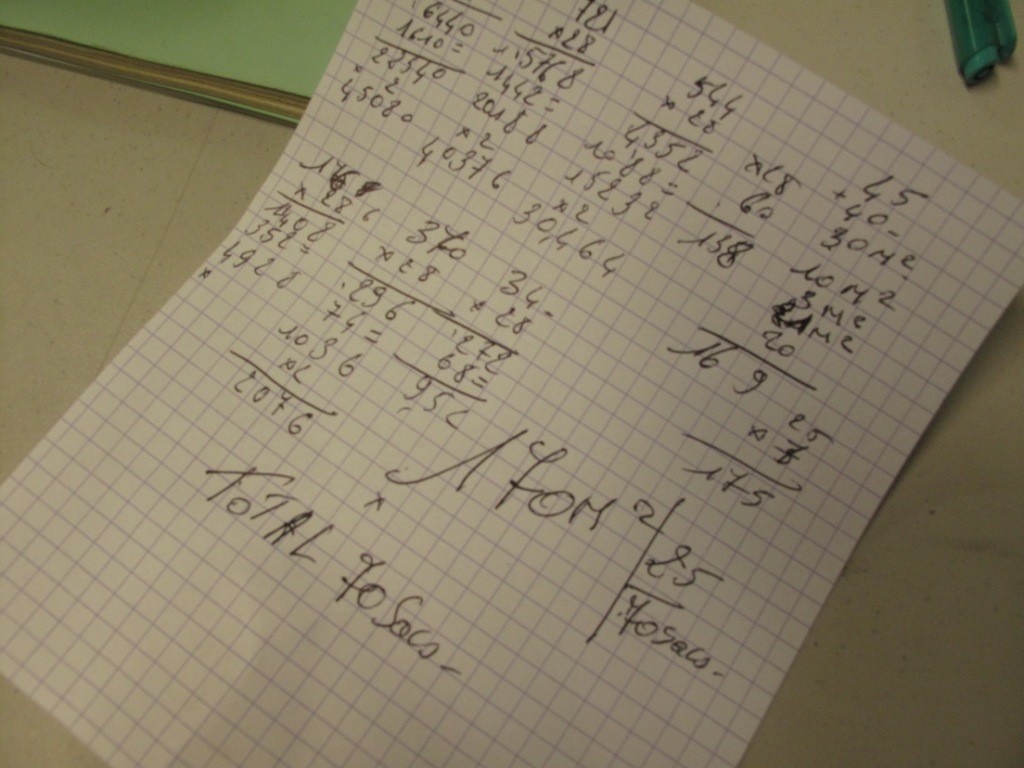 6440
1610=
22540
× 2
45080
721
×28
1,5768
1442=
20188
×2
40376
544
× 28
4,352
1088=
15232
×2
30,464
×28
60
138
45
+ 40-
30 M2
10 M2
3 M2
20
169
25
× 7
175
4928
370
× 28
296
74=
1036
×2
2076
34-
× 28
272
68=
952
170 M2
25
70 sacs.
TOTAL 70 Sacs-